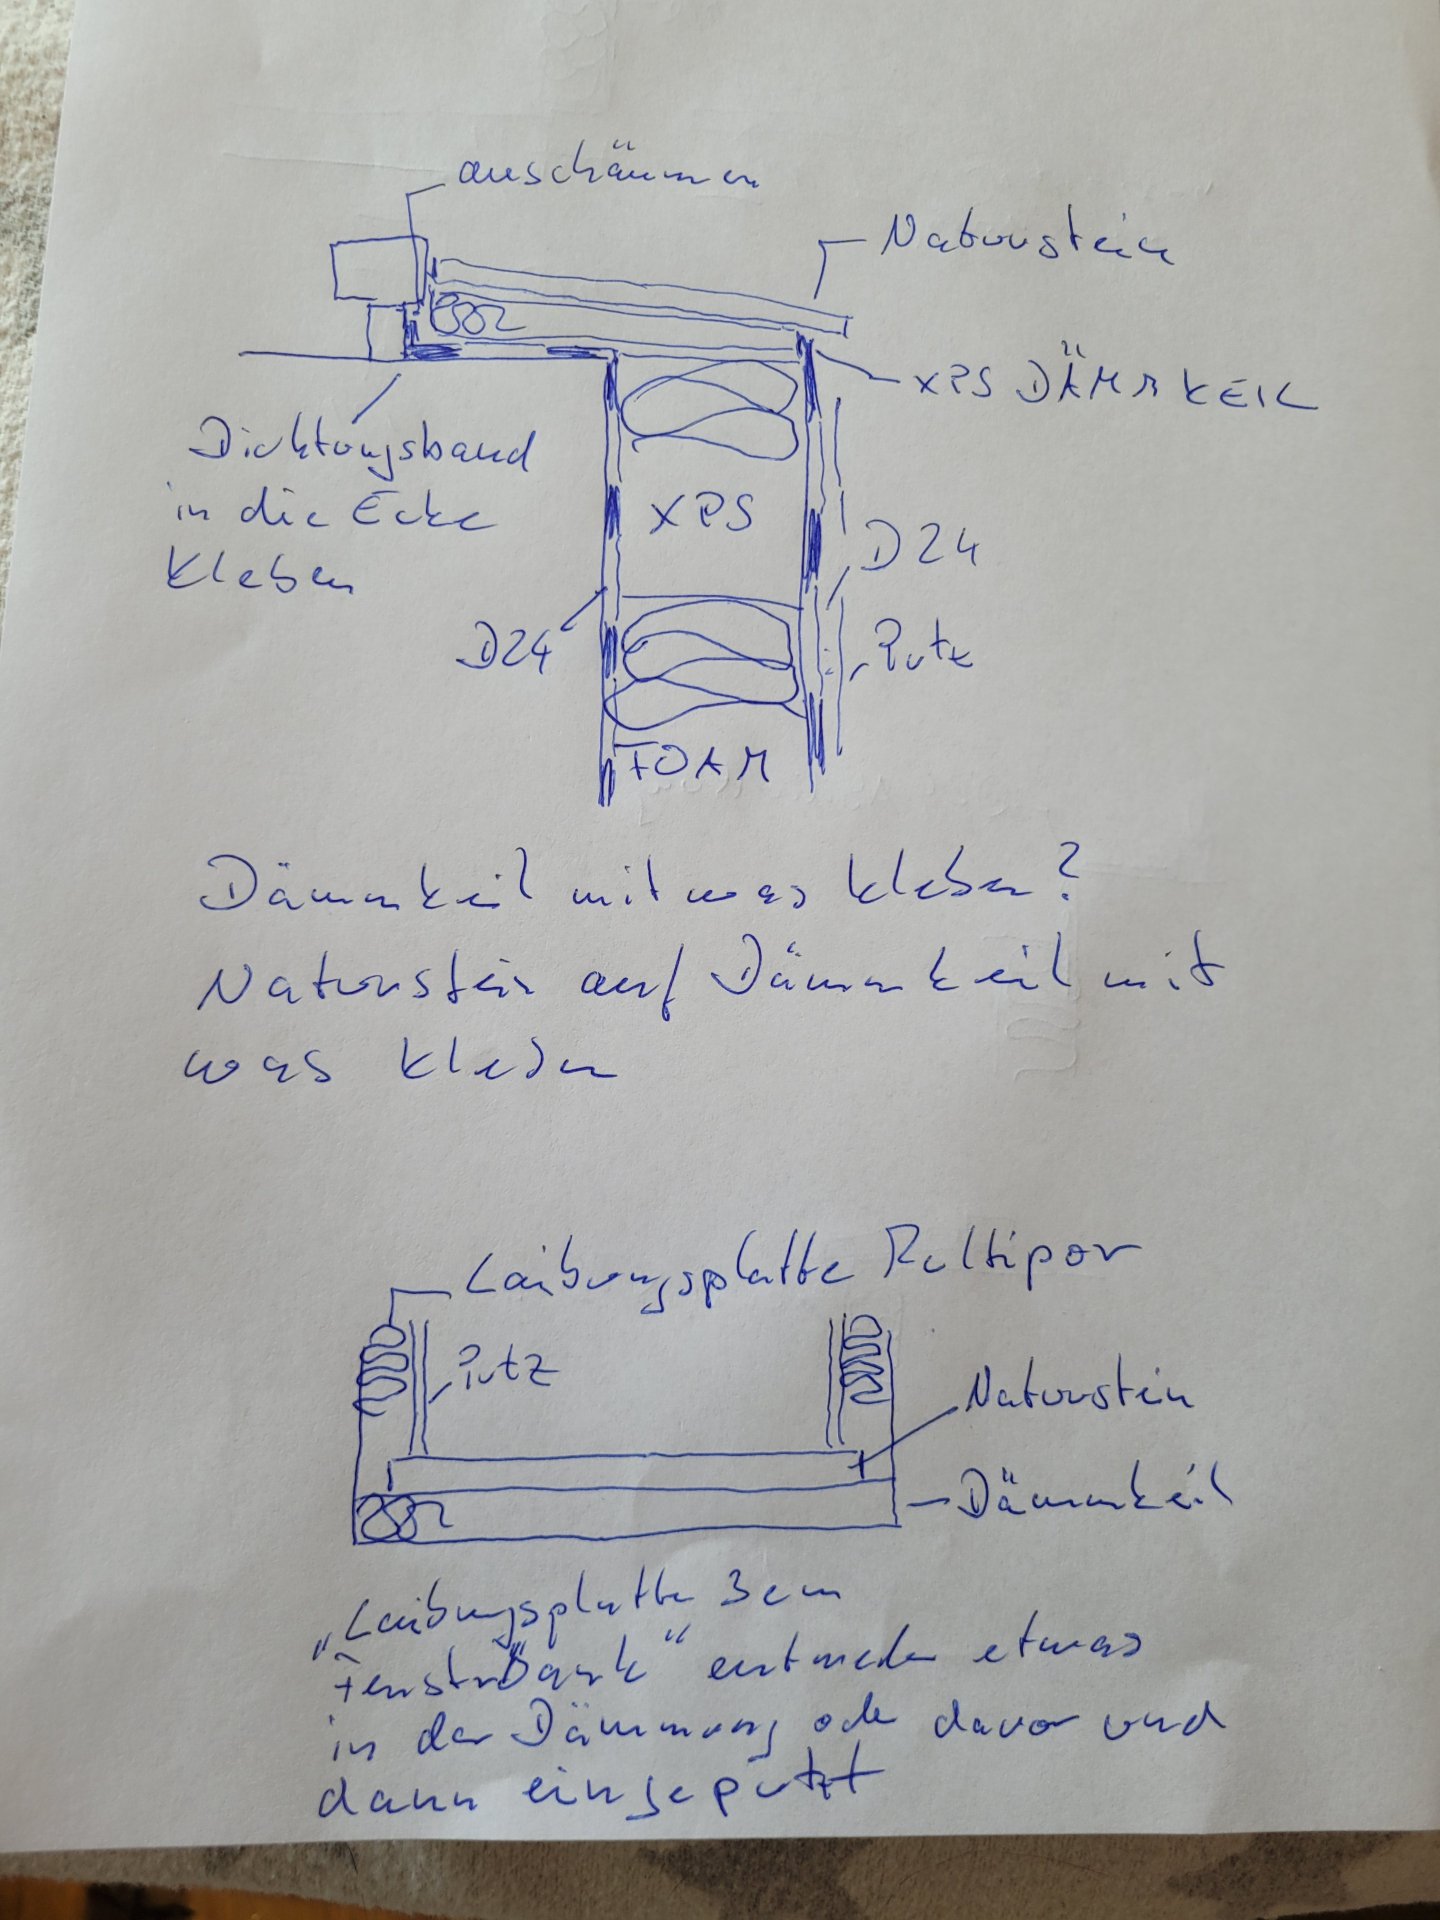 anschäumen
Naturstein
XPS DÄMMKEIL
Dichtungsband
in die Ecke
kleben
XPS
D24
D24
Putz
FOAM
Dämmkeil mit was kleben?
Naturstein auf Dämmkeil mit
was kleben
Laibungsplatte Multipor
Putz
Naturstein
Dämmkeil
"Laibungsplatte 3cm
Fensterbank" entweder etwas
in der Dämmung oder davor und
dann eingeputzt